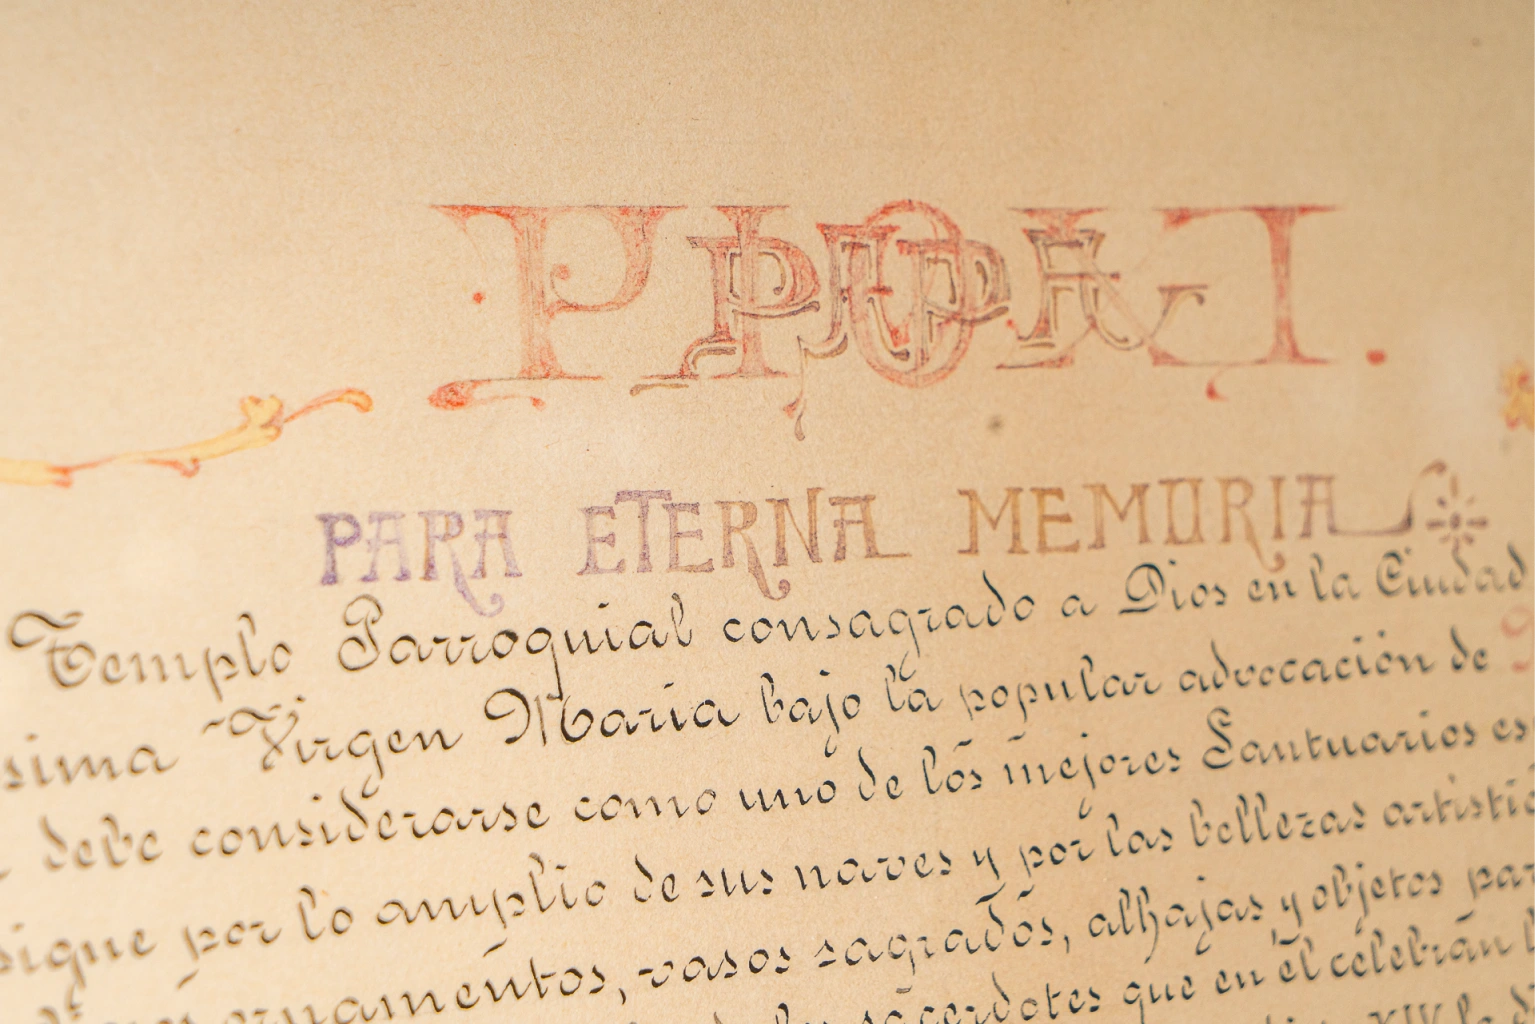 PIO XI
PAPA
PARA ETERNA MEMORIA
Templo Parroquial consagrado a Dios en la Ciudad
sima Virgen Maria bajo la popular advocación de
debe considerarse como uno de los mejores Santuarios es
sigue por lo amplio de sus naves y por las bellezas artisti
ornamentos, vasos sagrados, alhajas y objetos par
sacerdotes que en el celebran
XIV